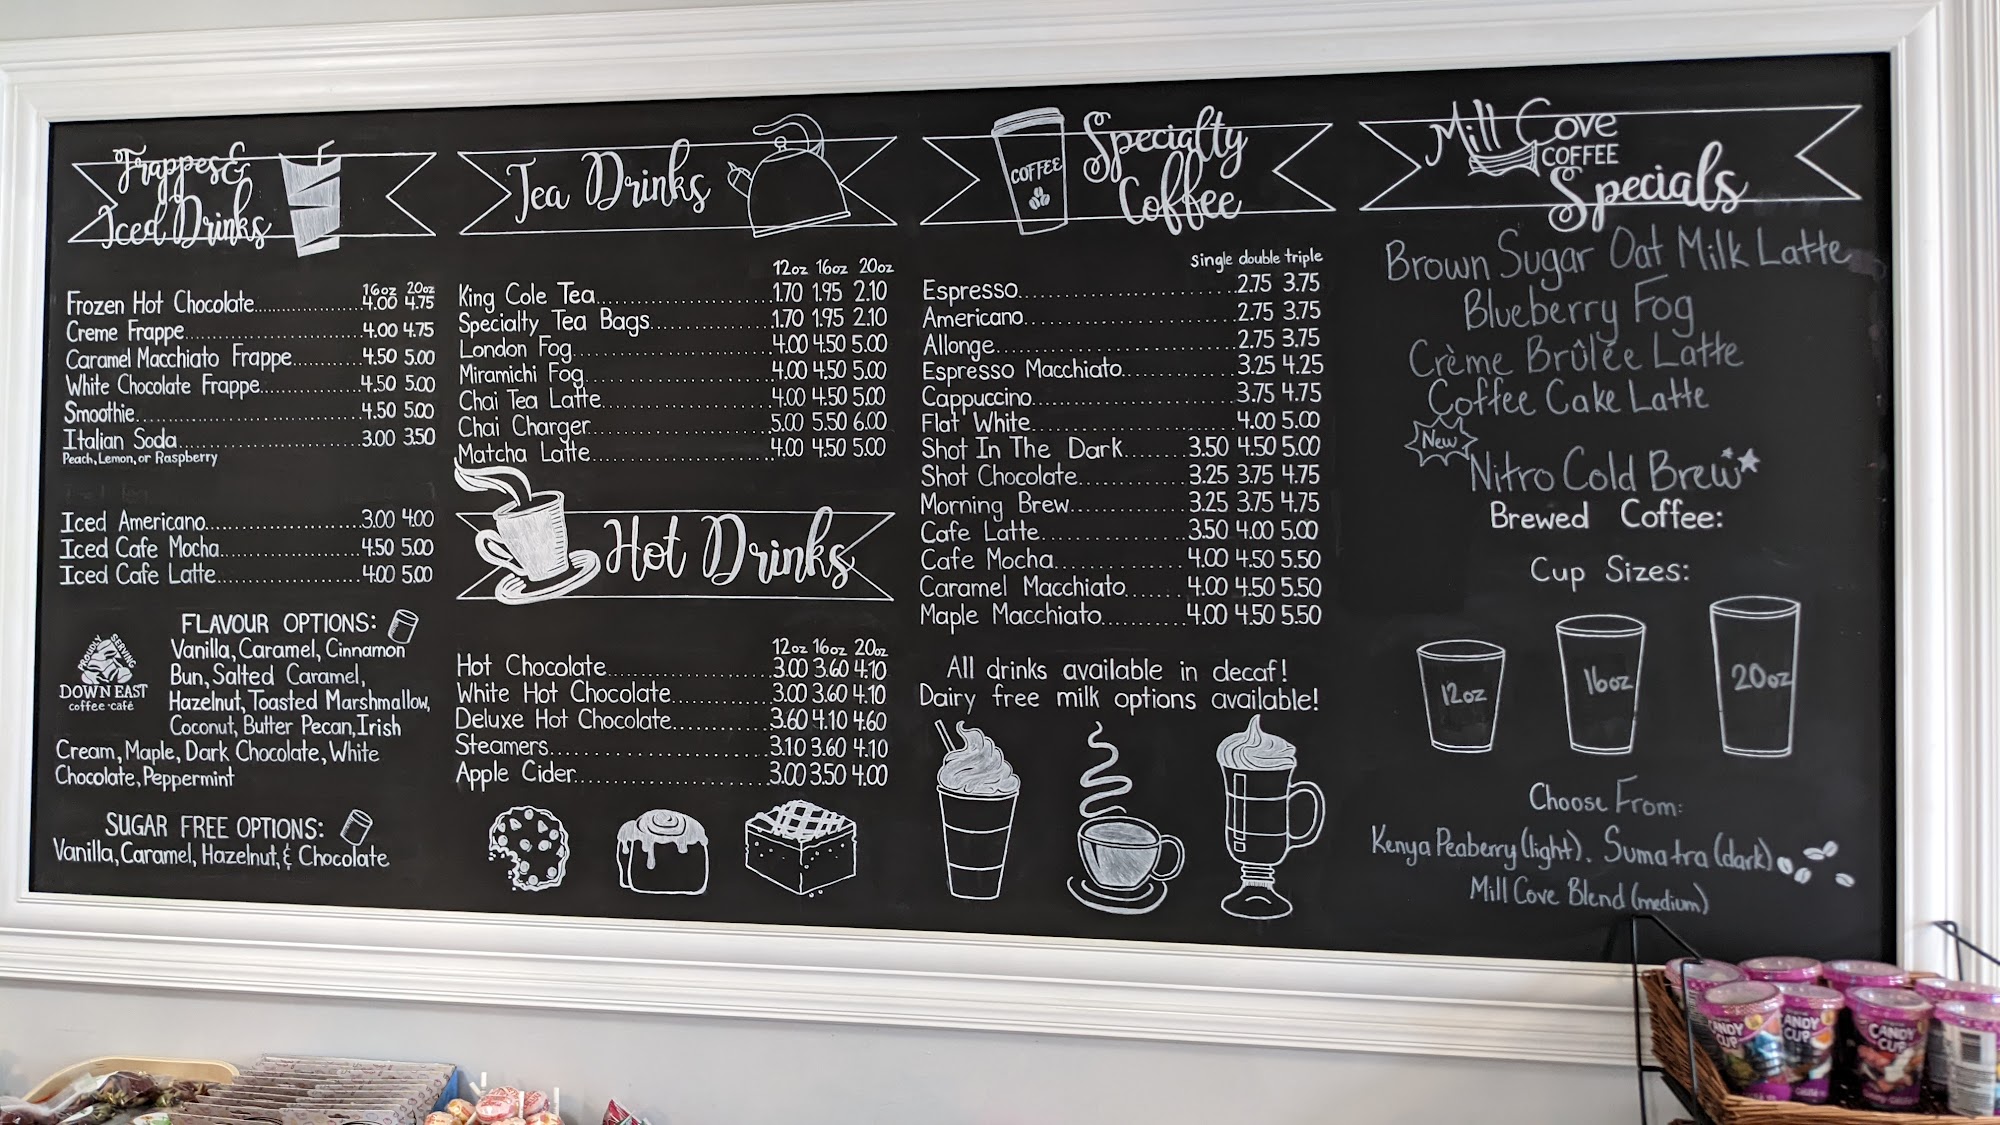 Frappes &
Iced Drinks
16oz 20oz
Frozen Hot Chocolate 4.00 4.75
Creme Frappe 4.00 4.75
Caramel Macchiato Frappe 4.50 5.00
White Chocolate Frappe 4.50 5.00
Smoothie 4.50 5.00
Italian Soda 3.00 3.50
Peach, Lemon, or Raspberry
Iced Americano 3.00 4.00
Iced Cafe Mocha 4.50 5.00
Iced Cafe Latte 4.00 5.00
FLAVOUR OPTIONS:
Vanilla, Caramel, Cinnamon
Bun, Salted Caramel,
Hazelnut, Toasted Marshmallow,
Coconut, Butter Pecan, Irish
Cream, Maple, Dark Chocolate, White
Chocolate, Peppermint
PROUDLY SERVING
DOWN EAST
coffee · café
SUGAR FREE OPTIONS:
Vanilla, Caramel, Hazelnut, & Chocolate
Tea Drinks
12oz 16oz 20oz
King Cole Tea 1.70 1.95 2.10
Specialty Tea Bags 1.70 1.95 2.10
London Fog 4.00 4.50 5.00
Miramichi Fog 4.00 4.50 5.00
Chai Tea Latte 4.00 4.50 5.00
Chai Charger 5.00 5.50 6.00
Matcha Latte 4.00 4.50 5.00
Hot Drinks
12oz 16oz 20oz
Hot Chocolate 3.00 3.60 4.10
White Hot Chocolate 3.00 3.60 4.10
Deluxe Hot Chocolate 3.60 4.10 4.60
Steamers 3.10 3.60 4.10
Apple Cider 3.00 3.50 4.00
COFFEE
Specialty
Coffee
single double triple
Espresso 2.75 3.75
Americano 2.75 3.75
Allonge 2.75 3.75
Espresso Macchiato 3.25 4.25
Cappuccino 3.75 4.75
Flat White 4.00 5.00
Shot In The Dark 3.50 4.50 5.00
Shot Chocolate 3.25 3.75 4.75
Morning Brew 3.25 3.75 4.75
Cafe Latte 3.50 4.00 5.00
Cafe Mocha 4.00 4.50 5.50
Caramel Macchiato 4.00 4.50 5.50
Maple Macchiato 4.00 4.50 5.50
All drinks available in decaf!
Dairy free milk options available!
Mill Cove
COFFEE
Specials
Brown Sugar Oat Milk Latte
Blueberry Fog
Crème Brûlée Latte
Coffee Cake Latte
New
Nitro Cold Brew
Brewed Coffee:
Cup Sizes:
12oz 16oz 20oz
Choose From:
Kenya Peaberry (light). Sumatra (dark)
Mill Cove Blend (medium)
CANDY CUP
CANDY CUP
CANDY CUP